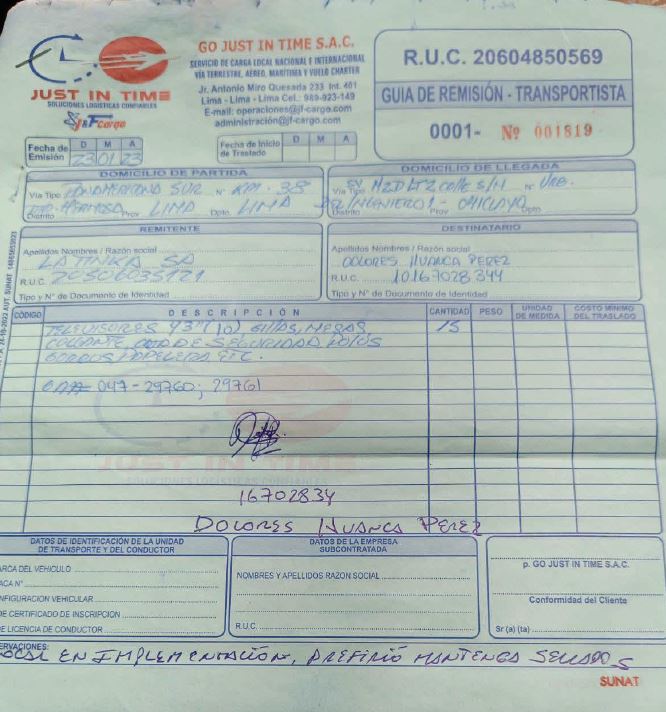 JUST IN TIME
SOLUCIONES LOGISTICAS CONFIABLES
J&F Cargo
GO JUST IN TIME S.A.C.
SERVICIO DE CARGA LOCAL NACIONAL E INTERNACIONAL
VÍA TERRESTRE, AEREO, MARÍTIMA Y VUELO CHARTER
Jr. Antonio Miro Quesada 233 Int. 401
Lima - Lima - Lima Cel.: 989-923-149
E-mail: operaciones@jf-cargo.com
administración@jf-cargo.com
R.U.C. 20604850569
GUIA DE REMISIÓN - TRANSPORTISTA
0001- Nº 001819
Fecha de Emisión D M A
23 01 23
Fecha de Inicio de Traslado D M A
DOMICILIO DE PARTIDA
Vía Tipo PANAMERICANA SUR Nº KM. 38
Distrito HERMOSA Prov LIMA Dpto. LIMA
DOMICILIO DE LLEGADA
Vía Tipo MZD LT2 CALLE S/N Nº URB.
Distrito INGENIEROS 1 - Prov CHICLAYO
REMITENTE
Apellidos Nombres / Razón social
LA TINKA SA
R.U.C. 20506035121
Tipo y N° de Documento de Identidad
DESTINATARIO
Apellidos Nombres / Razón social
DOLORES HUANCA PEREZ
R.U.C. 10167028344
Tipo y N° de Documento de Identidad
CÓDIGO DESCRIPCIÓN CANTIDAD PESO UNIDAD DE MEDIDA COSTO MINIMO DEL TRASLADO
TELEVISORES 43" (10) SILLAS, MESAS, 15
COLGANTE, DE SEGURIDAD
PAPELERA ETC.
047-29760; 29761
16702834
DOLORES HUANCA PEREZ
JUST IN TIME
SOLUCIONES LOGISTICAS CONFIABLES
DATOS DE IDENTIFICACIÓN DE LA UNIDAD
DE TRANSPORTE Y DEL CONDUCTOR
ARCA DEL VEHICULO
ACA Nº
NFIGURACION VEHICULAR
DE CERTIFICADO DE INSCRIPCION
DE LICENCIA DE CONDUCTOR
DATOS DE LA EMPRESA
SUBCONTRATADA
NOMBRES Y APELLIDOS RAZON SOCIAL
R.U.C.
p. GO JUST IN TIME S.A.C.
Conformidad del Cliente
Sr (a) (ta)
ERVACIONES:
LOCAL EN IMPLEMENTACIÓN, PREFIRIÓ MANTENGA SELLADOS
SUNAT